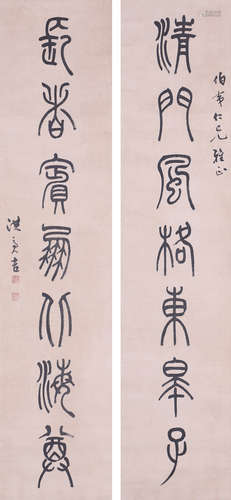 伯仁兄雅正
清門風格東皋子
長者賓朋北海尊
洪亮吉